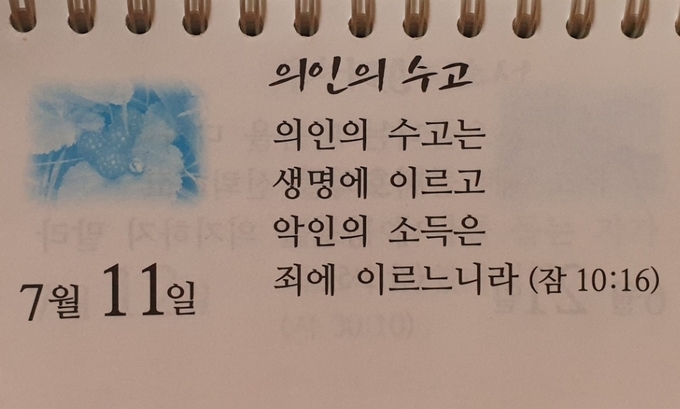 의인의 수고
의인의 수고는
생명에 이르고
악인의 소득은
죄에 이르느니라 (잠 10:16)
7월 11일